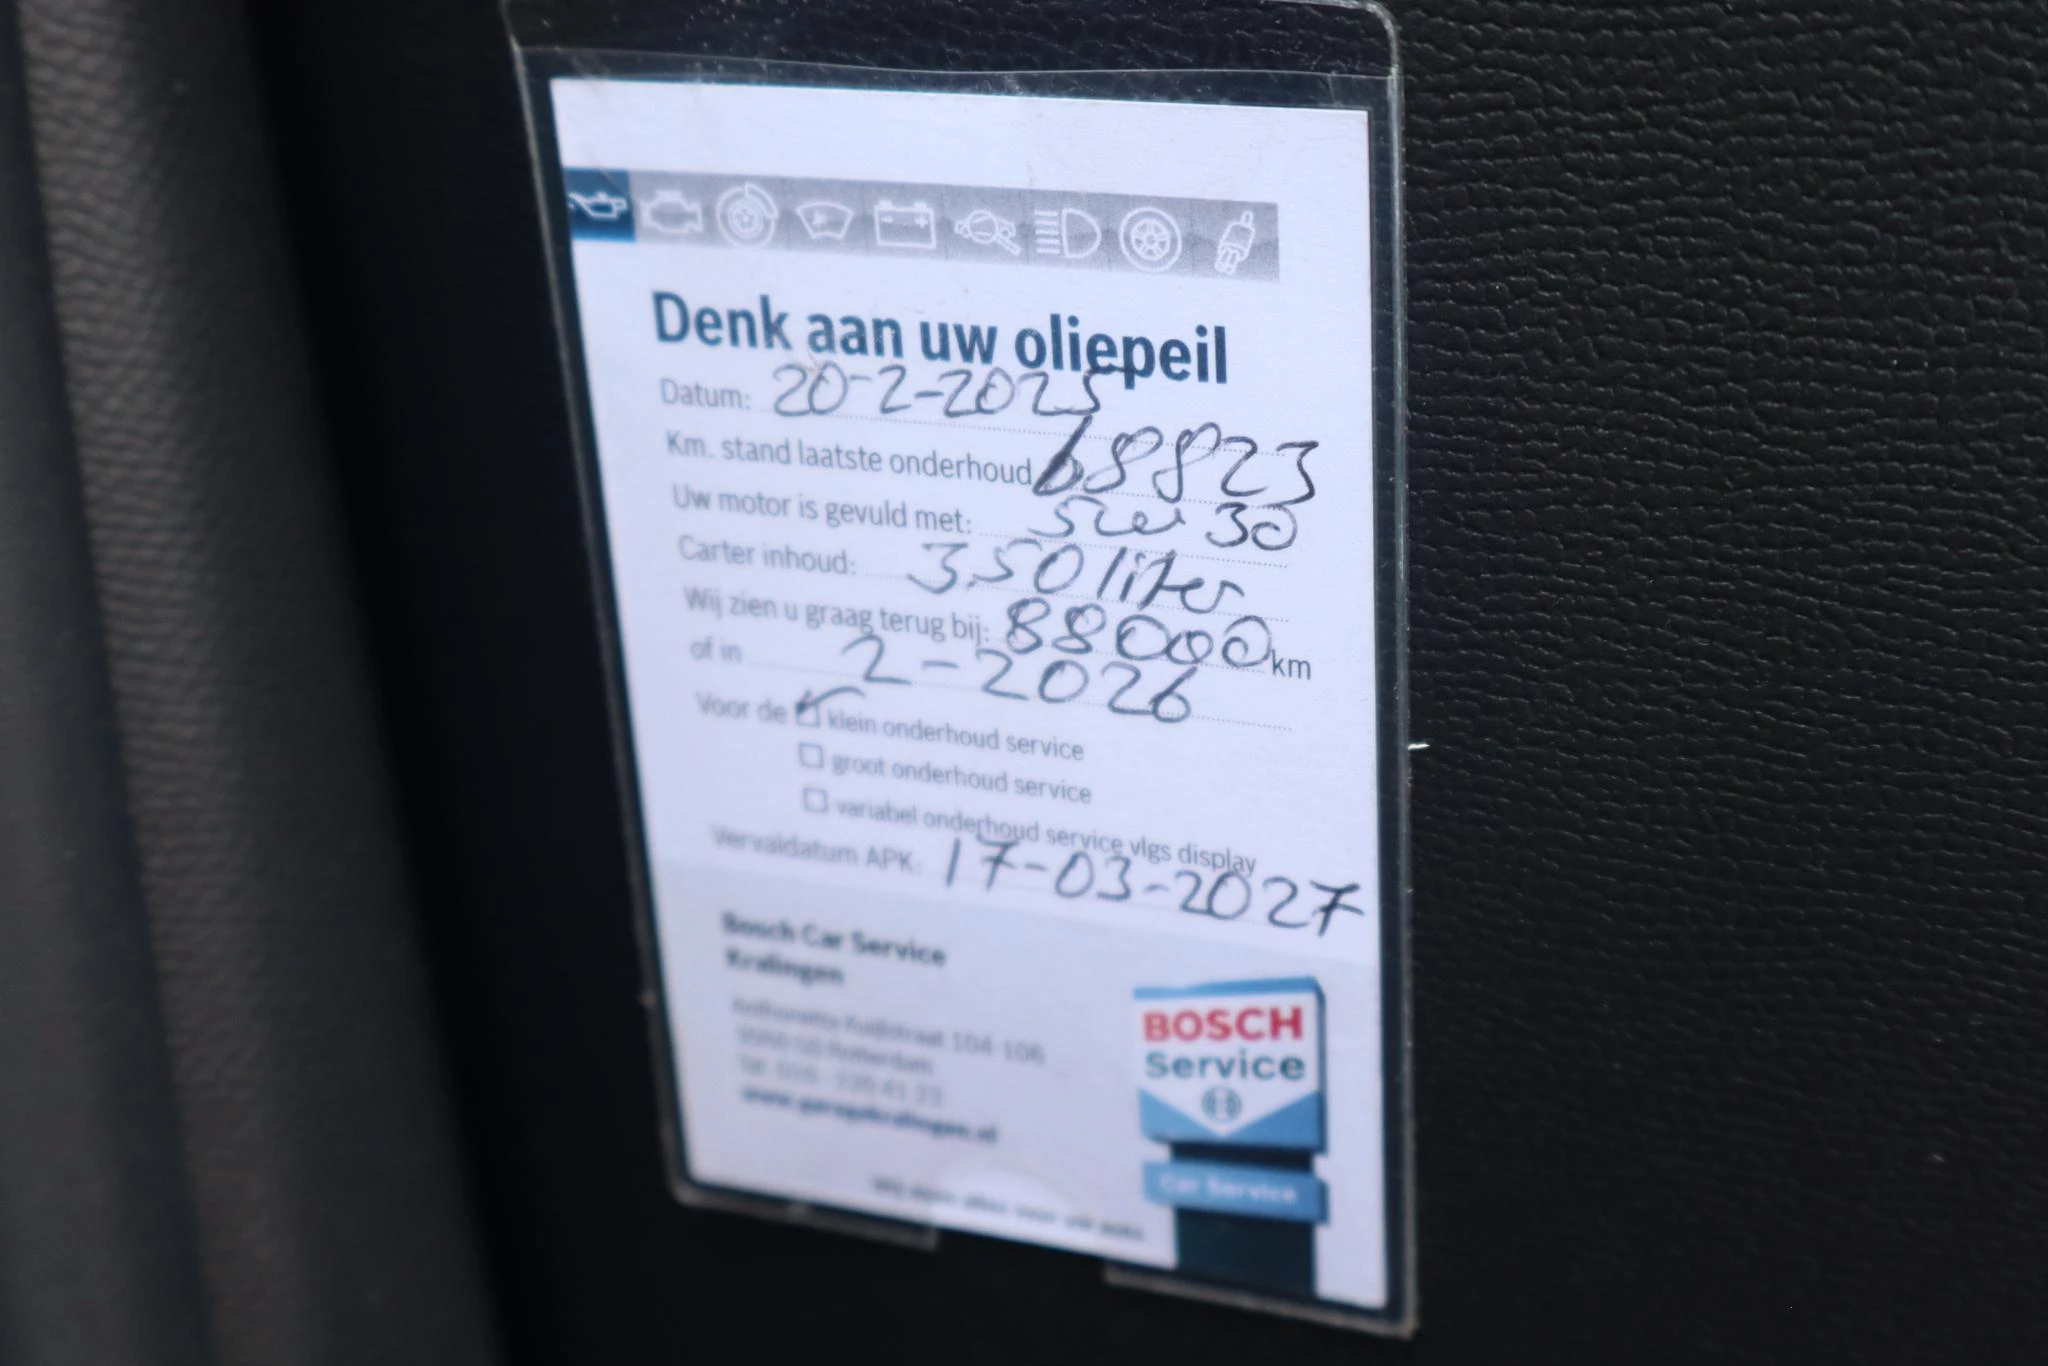 Denk aan uw oliepeil
Datum: 20-2-2025
Km. stand laatste onderhoud 68823
Uw motor is gevuld met: 5w 30
Carter inhoud: 3.50 liter
Wij zien u graag terug bij: 88000 km
of in 2-2026
Voor de klein onderhoud service
groot onderhoud service
variabel onderhoud service vlgs display
Vervaldatum APK: 17-03-2027
Bosch Car Service
Kralingen
104-106
Rotterdam
www.garagekralingen.nl
BOSCH
Service
Car Service